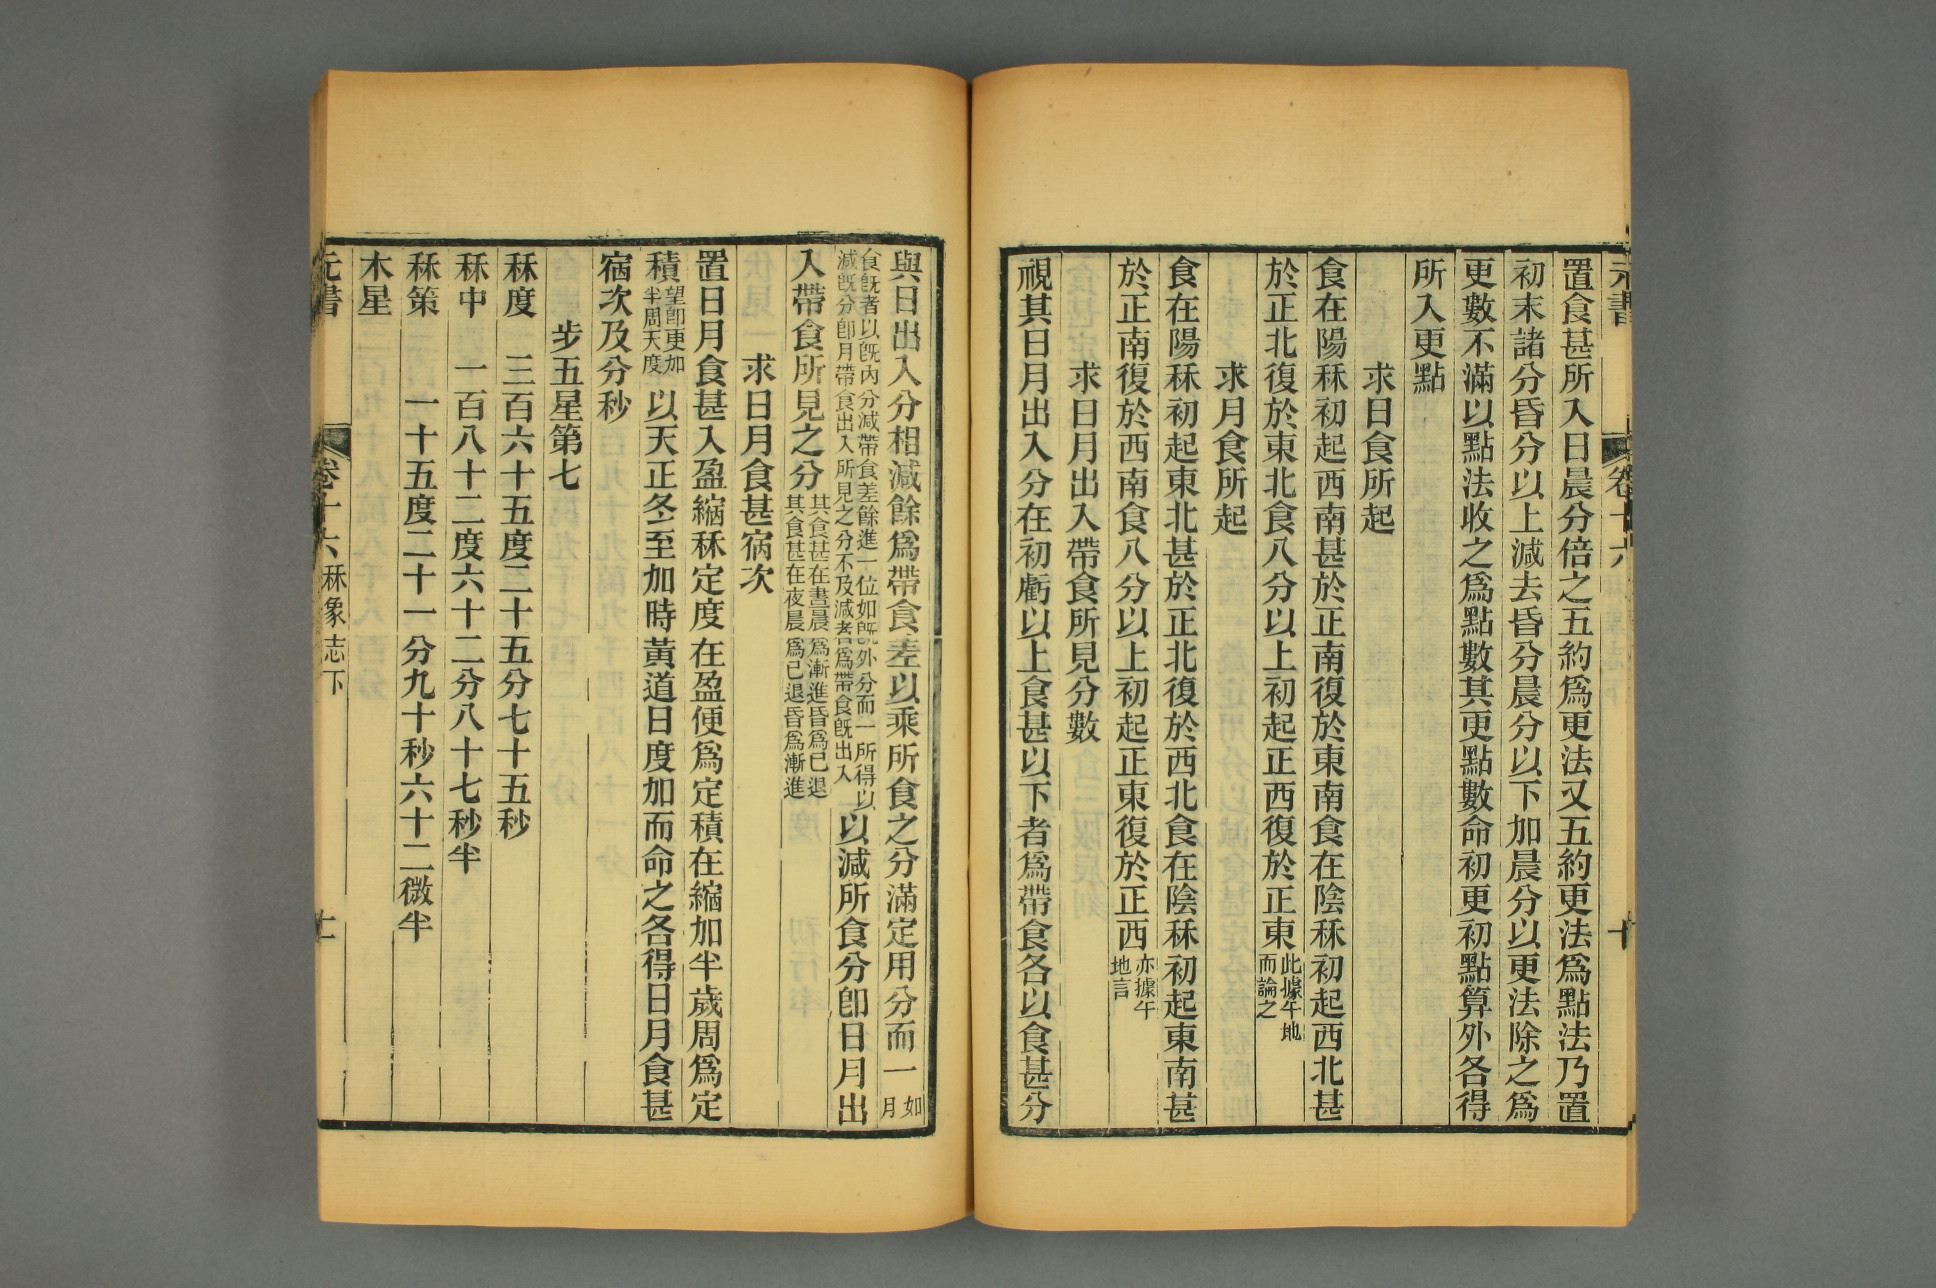 元書
卷十六
十
置食甚所入日晨分倍之五約爲更法又五約更法爲點法乃置
初末諸分昏分以上減去昏分晨分以下加晨分以更法除之爲
更數不滿以點法收之爲點數其更點數命初更初點算外各得
所入更點
求日食所起
食在陽秝初起西南甚於正南復於東南食在陰秝初起西北甚
於正北復於東北食八分以上初起正西復於正東此據午地
而論之
求月食所起
食在陽秝初起東北甚於正北復於西北食在陰秝初起東南甚
於正南復於西南食八分以上初起正東復於正西亦據午
地言
求日月出入帶食所見分數
視其日月出入分在初虧以上食甚以下者爲帶食各以食甚分
與日出入分相減餘爲帶食差以乘所食之分滿定用分而一如
月
食旣者以旣內分減帶食差餘進一位如旣外分而一所得以
減旣分卽月帶食出入所見之分不及減者爲帶食旣出入以減所食分卽日月出
入帶食所見之分其食甚在晝晨爲漸進昏爲已退
其食甚在夜晨爲已退昏爲漸進
求日月食甚宿次
置日月食甚入盈縮秝定度在盈便爲定積在縮加半歲周爲定
積望卽更加
半周天度以天正冬至加時黃道日度加而命之各得日月食甚
宿次及分秒
步五星第七
秝度　三百六十五度二十五分七十五秒
秝中　一百八十二度六十二分八十七秒半
秝策　一十五度二十一分九十秒六十二微半
木星
元書
卷十六秝象志下
十一